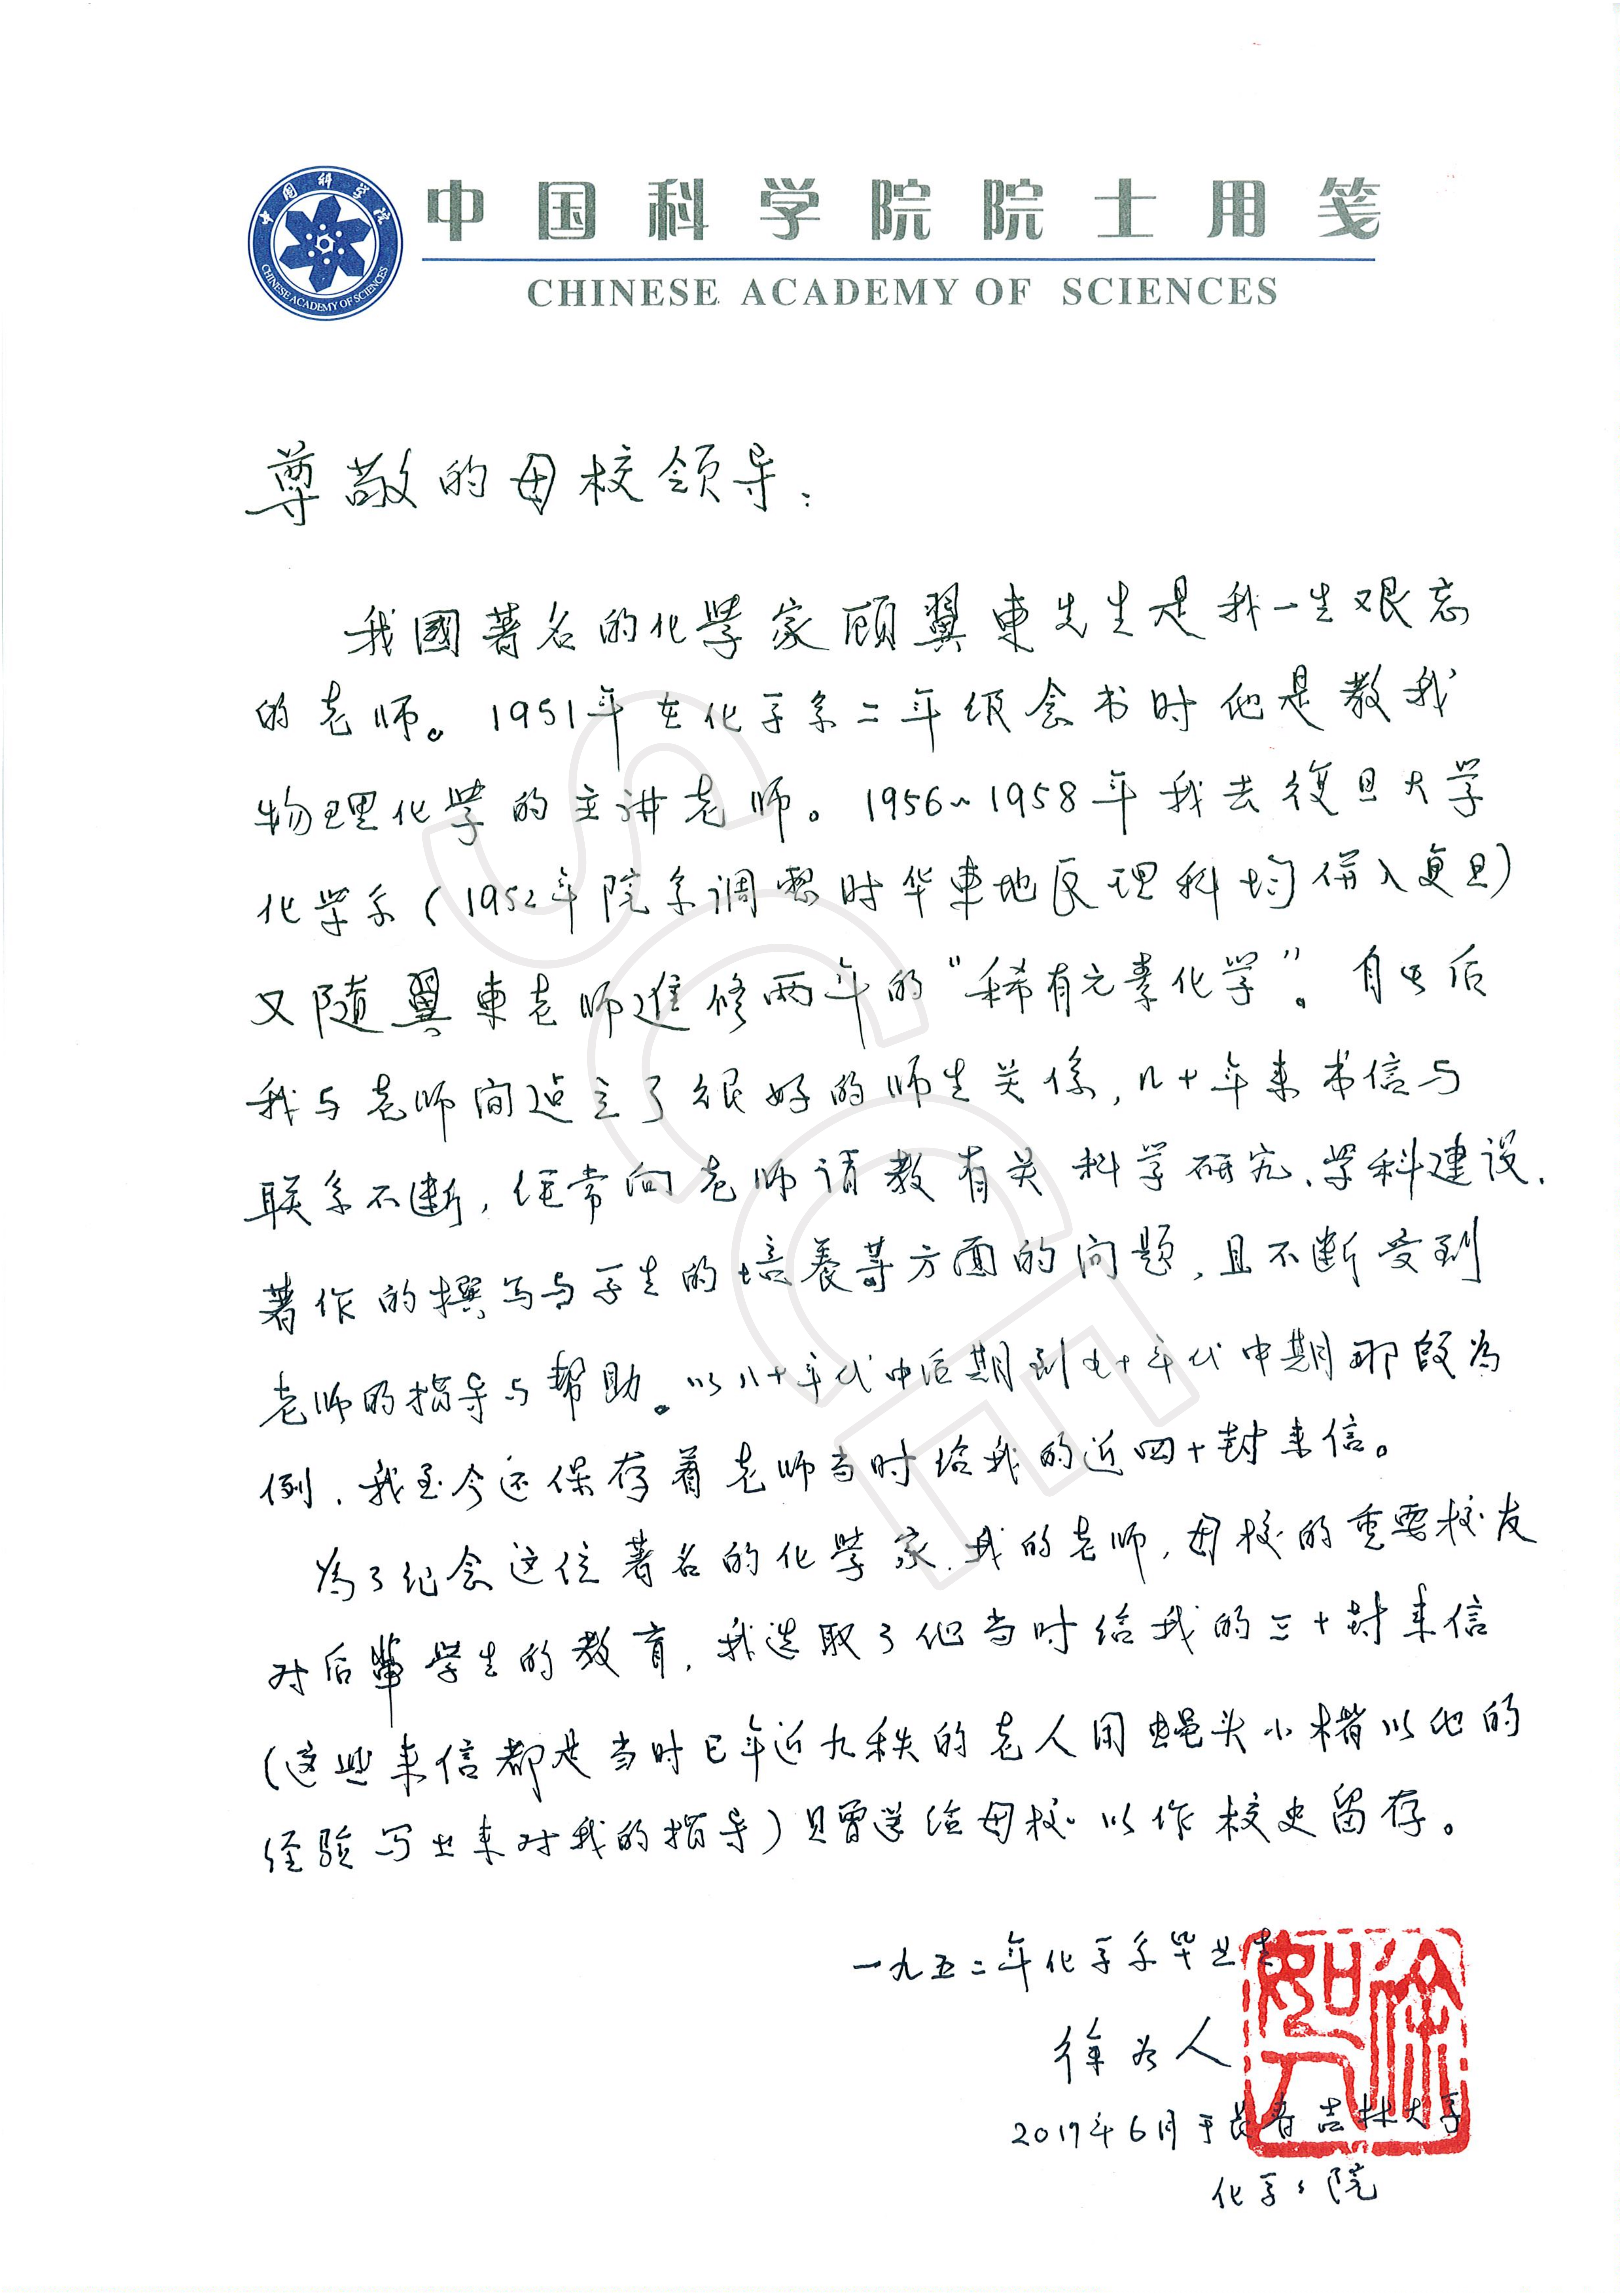 中国科学院
CHINESE ACADEMY OF SCIENCES
中国科学院院士用笺
CHINESE ACADEMY OF SCIENCES
尊敬的母校领导：
我國著名的化學家顾翼東先生是我一生难忘
的老师。1951年在化学系二年级念书时他是教我
物理化學的主讲老师。1956~1958年我去復旦大学
化学系（1952年院系调整时华東地区理科均併入复旦）
又随翼東老师進修两年的“稀有元素化学”。自此后
我与老师间建立了很好的师生关係，几十年来书信与
联系不断，经常向老师请教有关科学研究、学科建设、
著作的撰写与学生的培養等方面的问题，且不断受到
老师的指导与帮助。以八十年代中后期到九十年代中期那段为
例，我至今还保存着老师当时给我的近四十封来信。
為了纪念这位著名的化学家、我的老师，母校的重要校友
对后輩學生的教育，我选取了他当时给我的三十封来信
（这些来信都是当时已年近九秩的老人用蝇头小楷以他的
经验写出来对我的指导）贝曾送给母校以作校史留存。
一九五二年化学系毕业生
徐如人
2017年6月于长春吉林大学
化学学院
徐如人
SCCE